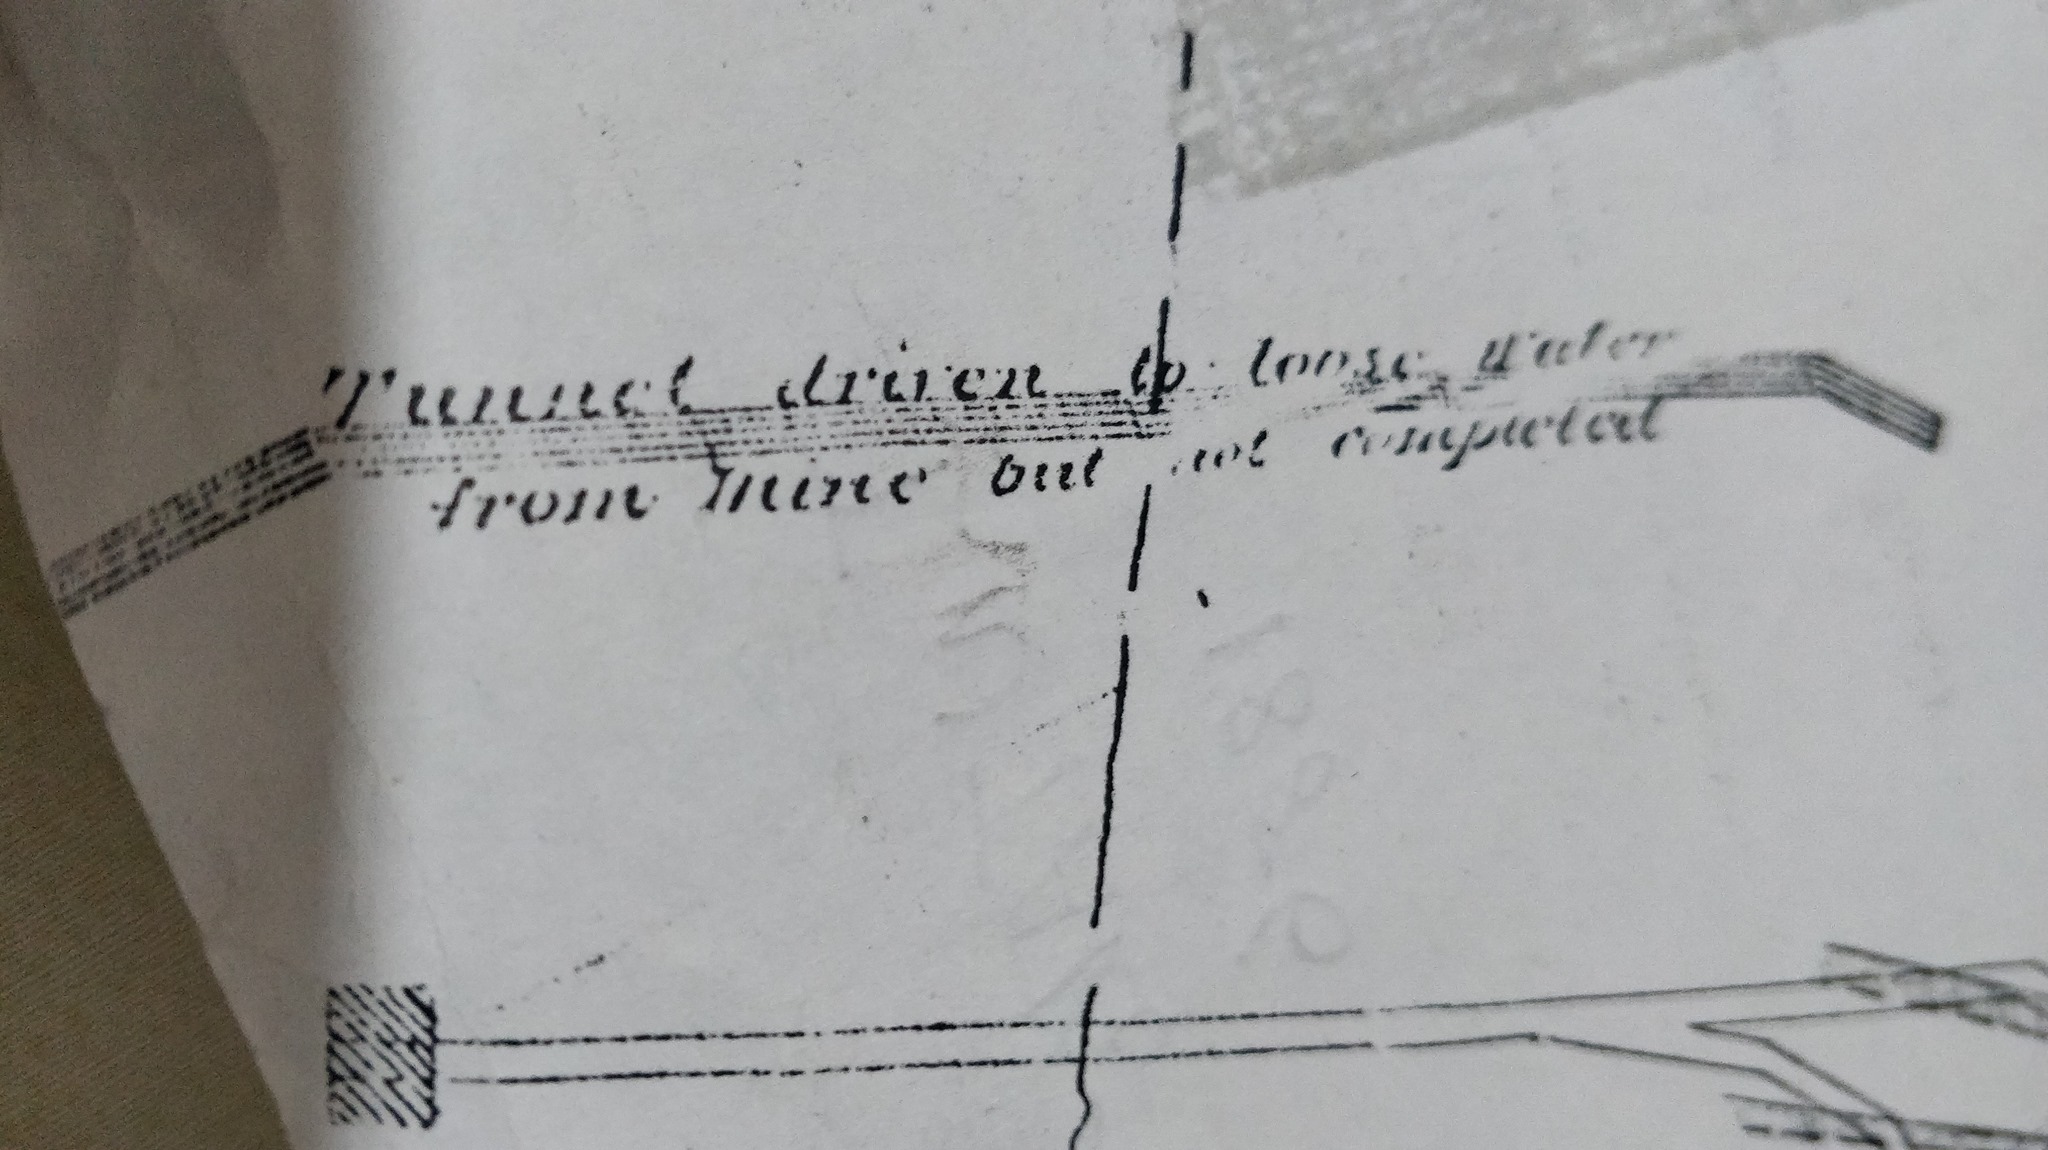 Tunnel driven to loose Water
from Mine but not completed